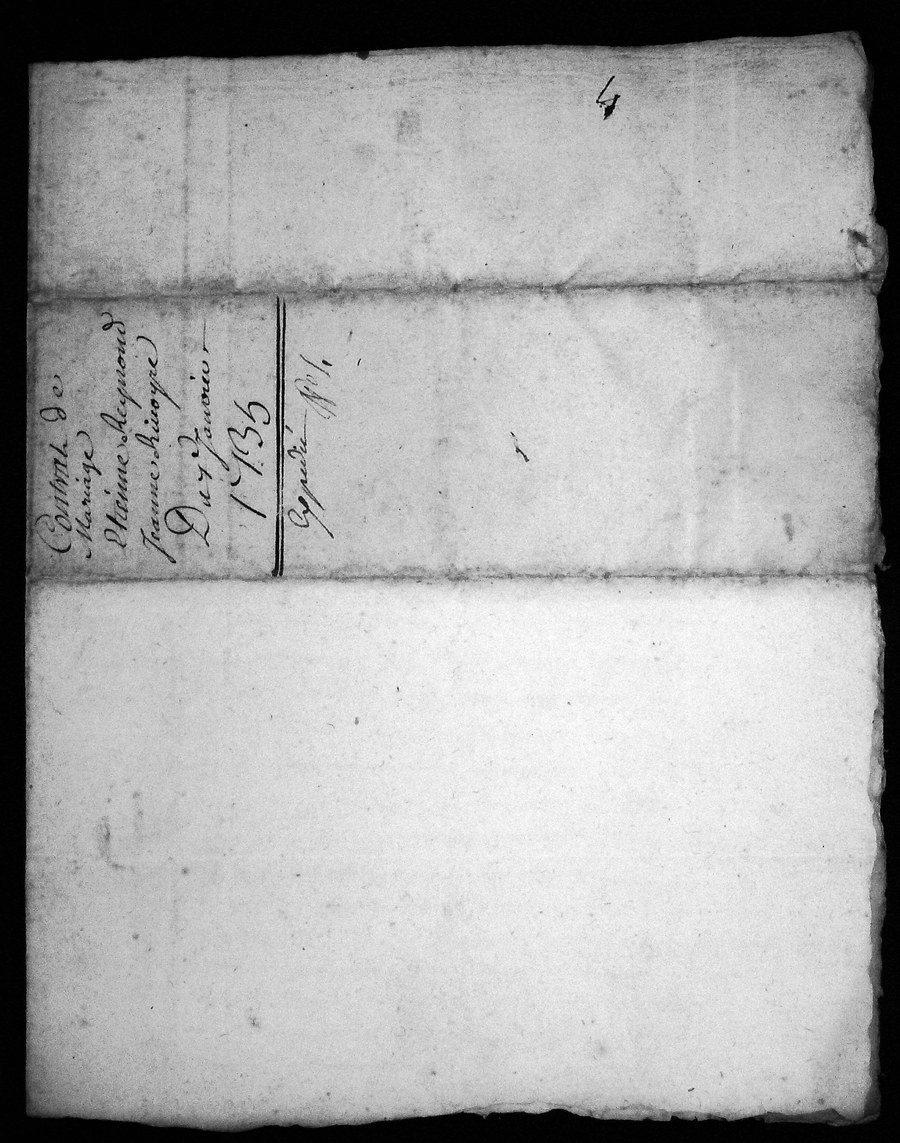 Contrat de
Mariage
Etienne Reymond
Jeanne Rivoyre
Du 7 Janvier
1735
Expedié